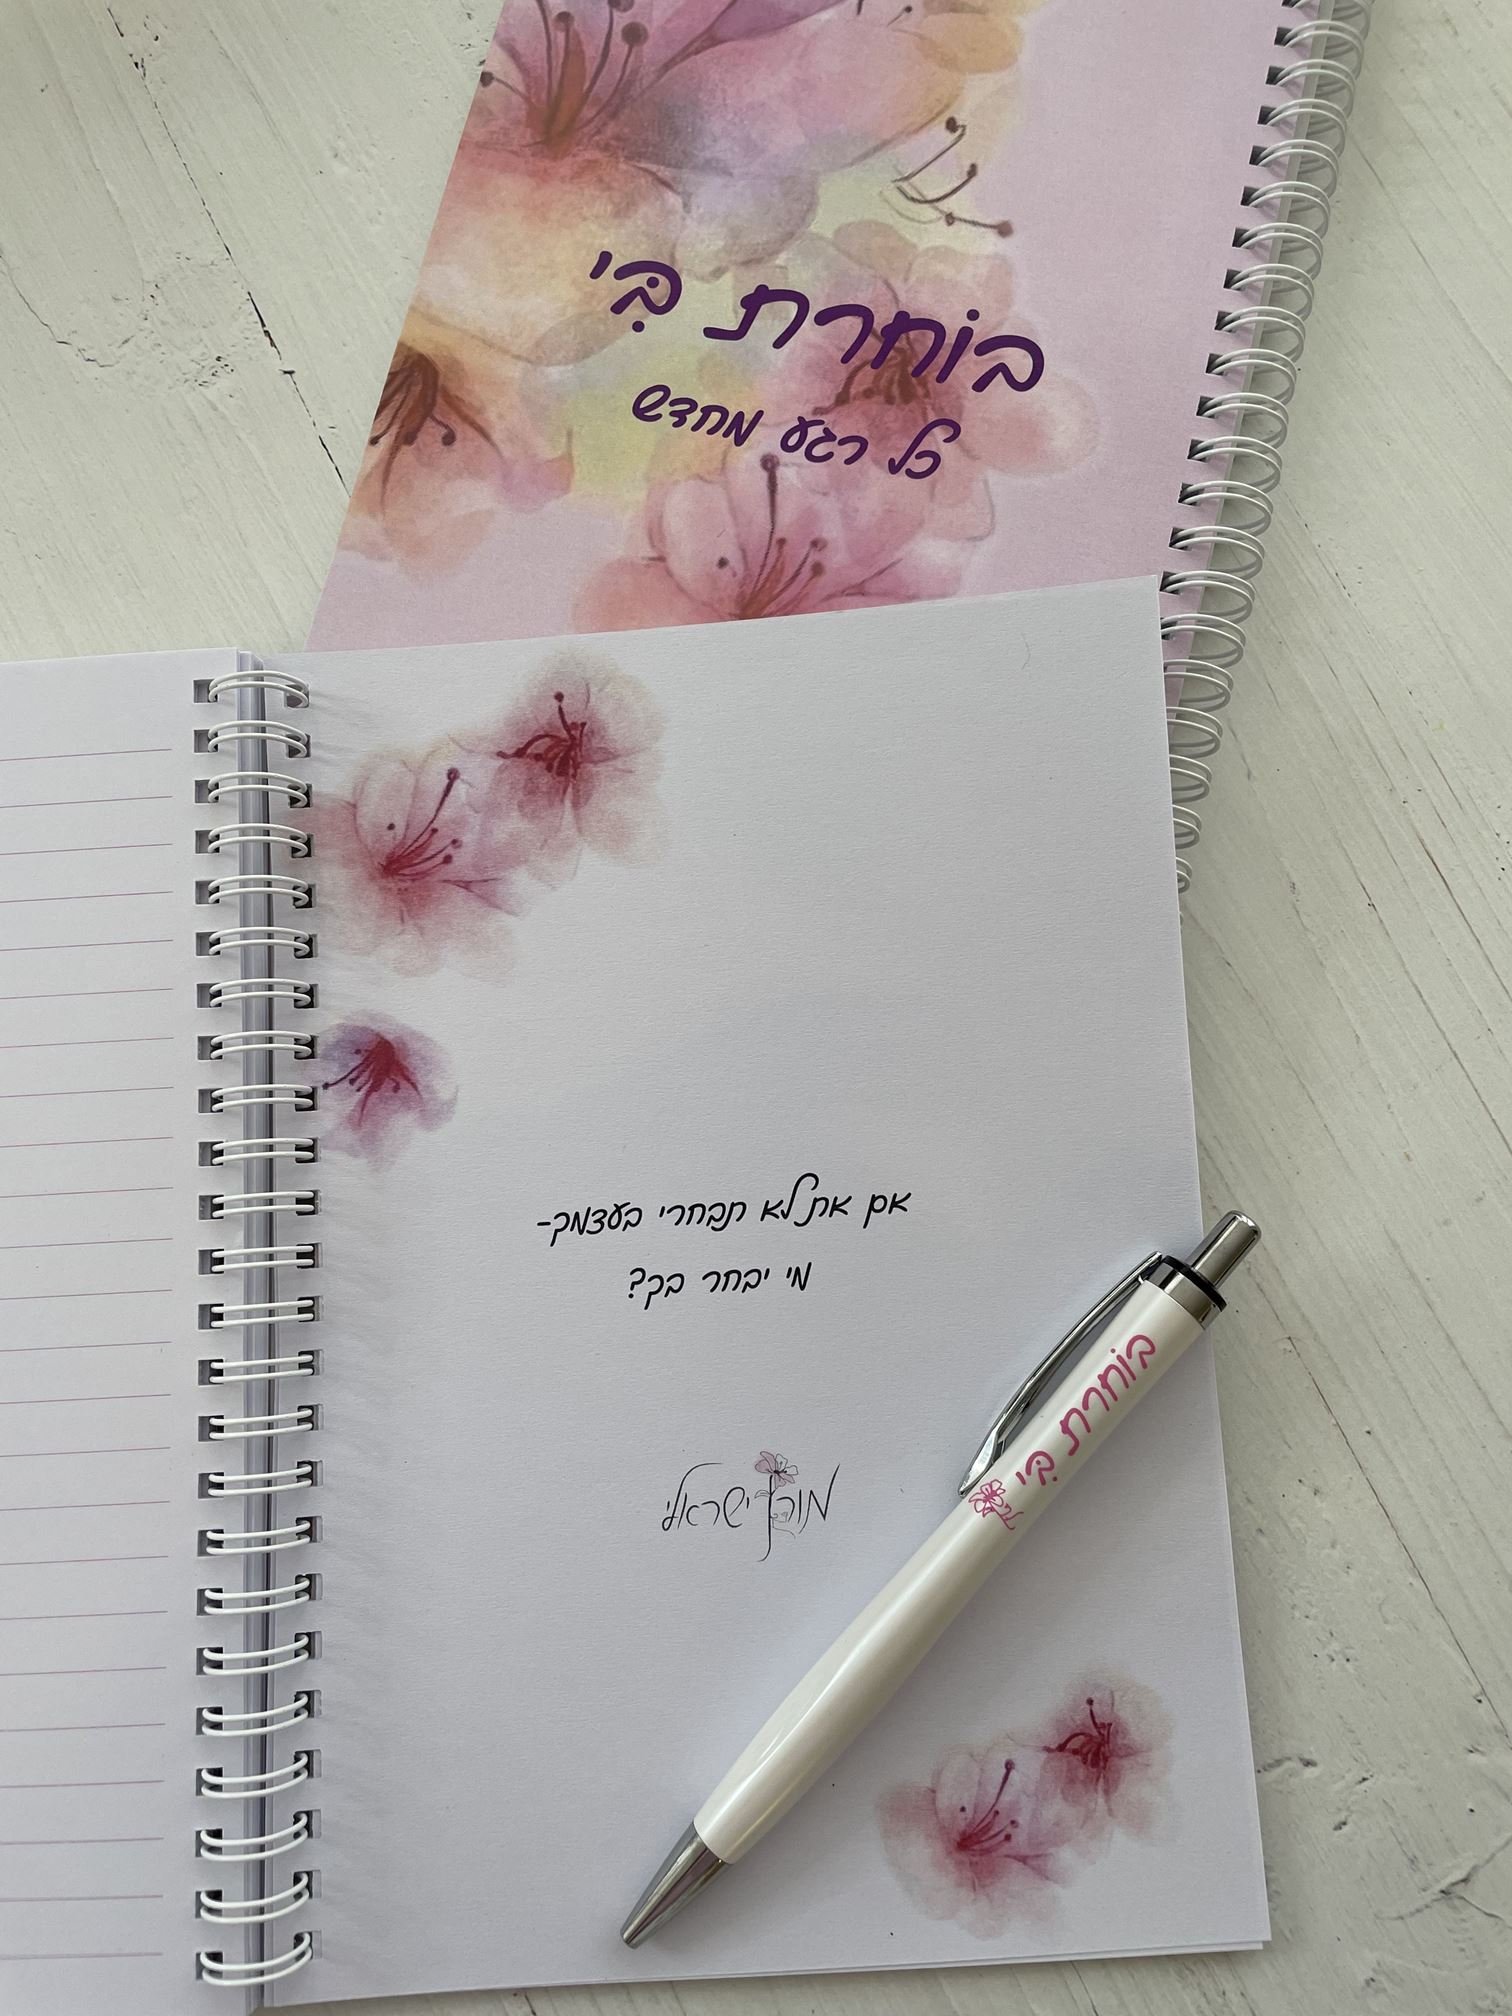 בוֹחרת בִּי
כל רגע מחדש
אם את לא תבחרי בעצמך-
מי יבחר בך?
מורן ישראלי
בוֹחרת בִּי